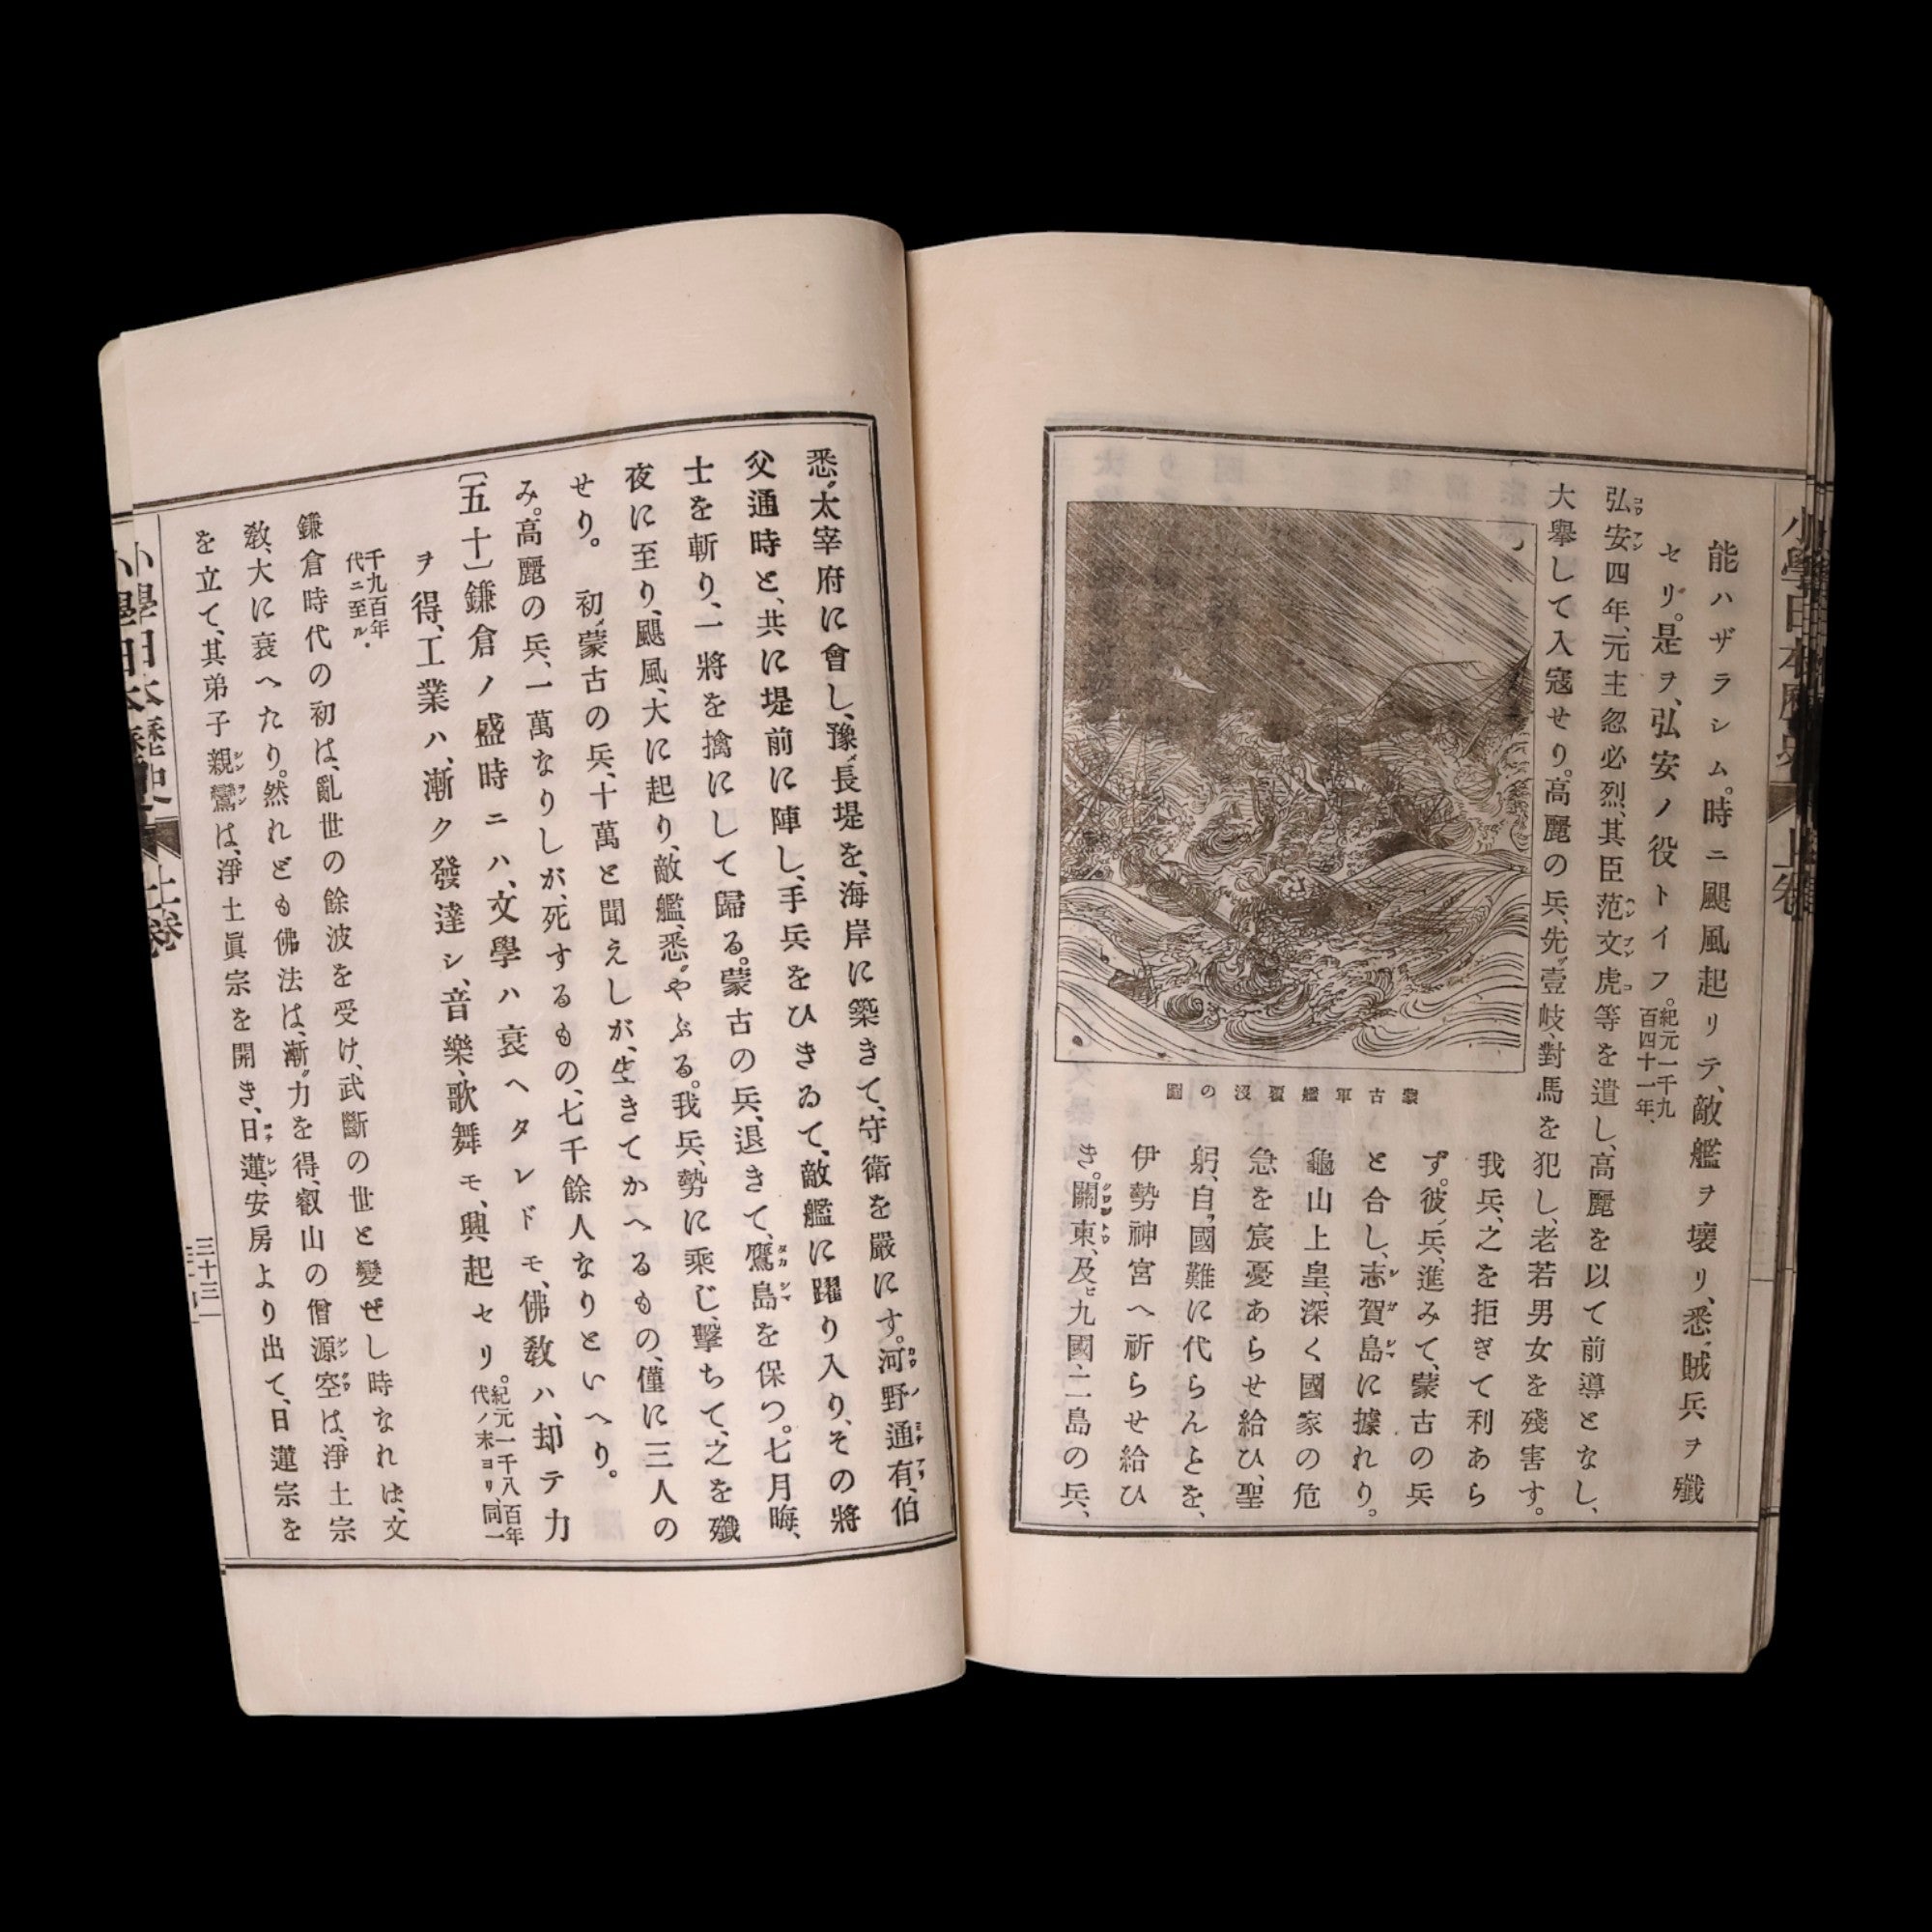 能ハザラシム。時ニ颶風起リテ、敵艦ヲ壞リ、悉ク賊兵ヲ殲
セリ。是ヲ、弘安ノ役トイフ。紀元一千九百四十一年、
弘安四年、元主忽必烈、其臣范文虎等を遣し、高麗を以て前導となし、
大擧して入寇せり。高麗の兵、先ヅ壹岐、對馬を犯し、老若男女を殘害す。
蒙古軍艦覆沒の圖
我兵、之を拒ぎて利あら
ず。彼ノ兵、進みて、蒙古の兵
と合し、志賀島に據れり。
龜山上皇、深く國家の危
急を宸憂あらせ給ひ、聖
躬、自ラ國難に代らんとを、
伊勢神宮へ祈らせ給ひ
き。關東、及ビ九國、二島の兵、
悉ク太宰府に會し、豫メ長堤を、海岸に築きて、守衛を嚴にす。河野通有、伯
父通時と、共に堤前に陣し、手兵をひきゐて、敵艦に躍り入り、その將
士を斬り、一將を擒にして歸る。蒙古の兵、退きて、鷹島を保つ。七月晦、
夜に至り、颶風、大に起り、敵艦、悉クやぶる。我兵、勢に乘じ、擊ちて、之を殲
せり。初メ蒙古の兵、十萬と聞えしが、生きてかへるもの、僅に三人の
み。高麗の兵、一萬なりしが、死するもの、七千餘人なりといへり。
〔五十〕鎌倉ノ盛時ニハ、文學ハ衰ヘタレドモ、佛敎ハ、却テ力
ヲ得、工業ハ、漸ク發達シ、音樂、歌舞モ、興起セリ。紀元一千八百年代ノ末ヨリ、同一
千九百年代ニ至ル。
鎌倉時代の初は、亂世の餘波を受け、武斷の世と變ぜし時なれは、文
敎、大に衰へたり。然れども佛法は、漸ク力を得、叡山の僧源空は、淨土宗
を立て、其弟子親鸞は、淨土眞宗を開き、日蓮、安房より出て、日蓮宗を
小學日本歷史 上卷 三十三